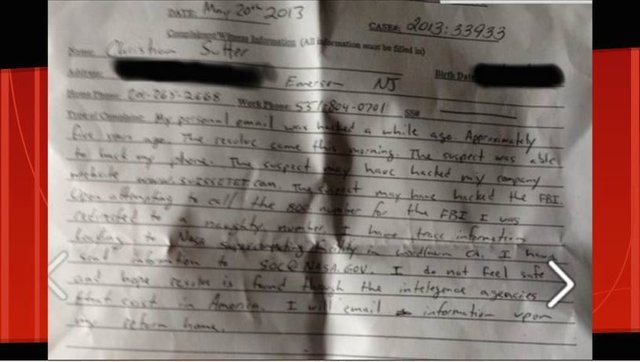 DATE: May 20th 2013
CASE#: 2013:33933
Complainant/Witness Information (All information must be filled in)
Name: Christian Sutter
Address: Emerson NJ Birth Date
Home Phone: 201-265-2668 Work Phone: 551/804-0701 SS#
Type of Complaint: My personal email was hacked a while ago. Approximately
five years ago. The resolve came this morning. The suspect was able
to hack my phone. The suspect may have hacked my company
website www. .com. The suspect may have hacked the FBI.
Upon attempting to call the 800 number for the FBI I was
redirected to a naughty number. I have trace information
leading to Nasa facility in CA. I have
sent information to SOC@NASA.GOV. I do not feel safe
and hope resolve is found through the intelegence agencies
that exist in America. I will email information upon
my return home.